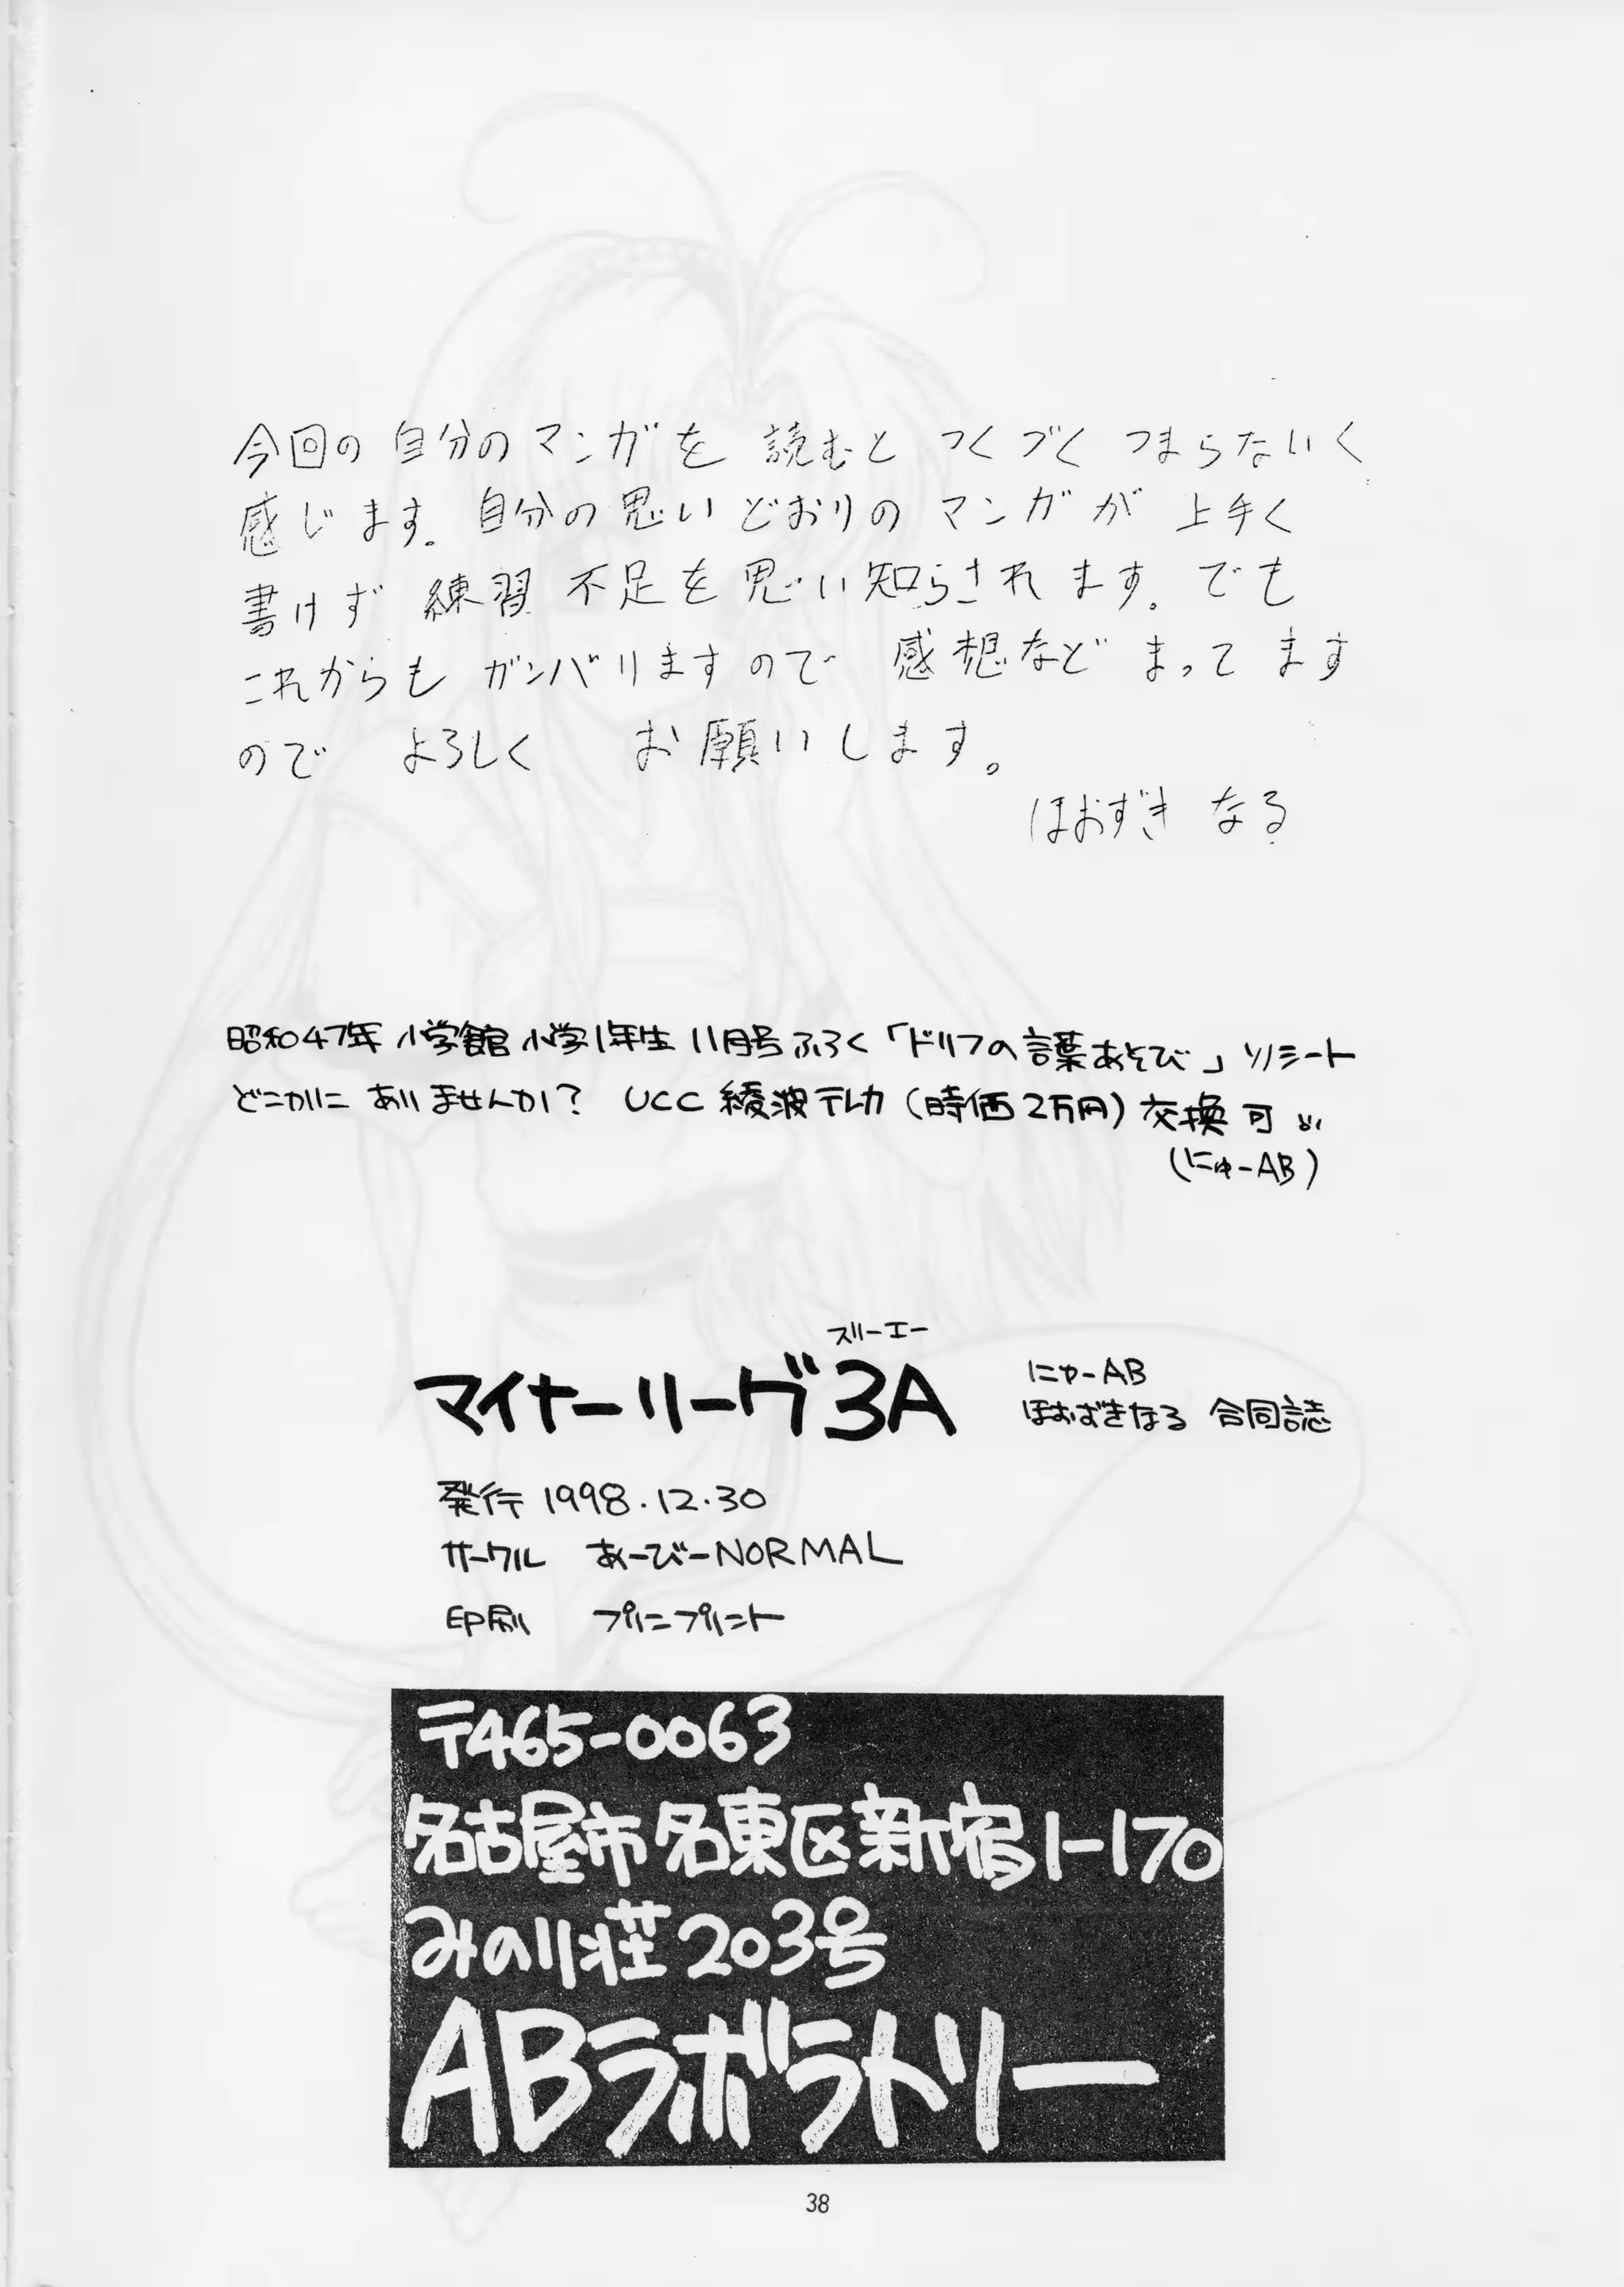 今回の 自分の マンガを 読むと つくづく つまらないく
感じます。自分の思い どおりの マンガが 上手く
書けず 練習 不足を 思い知らされます。でも
これからも ガンバリますので 感想など まってます
ので よろしく お願いします。
ほおずき なる
昭和47年 小学館 小学1年生 11月号 ふろく「ドリフの言葉あそび」ソノシート
どこかに ありませんか? UCC 綾波テレカ(時価2万円)交換 可
(にゅーAB)
スリーエー
マイナーリーグ3A
にゅーAB
ほおずきなる 合同誌
発行 1998.12.30
サークル あーびーNORMAL
印刷 プリニプリント
〒465-0063
名古屋市名東区新宿1-170
みのり荘203号
ABラボラトリー
38